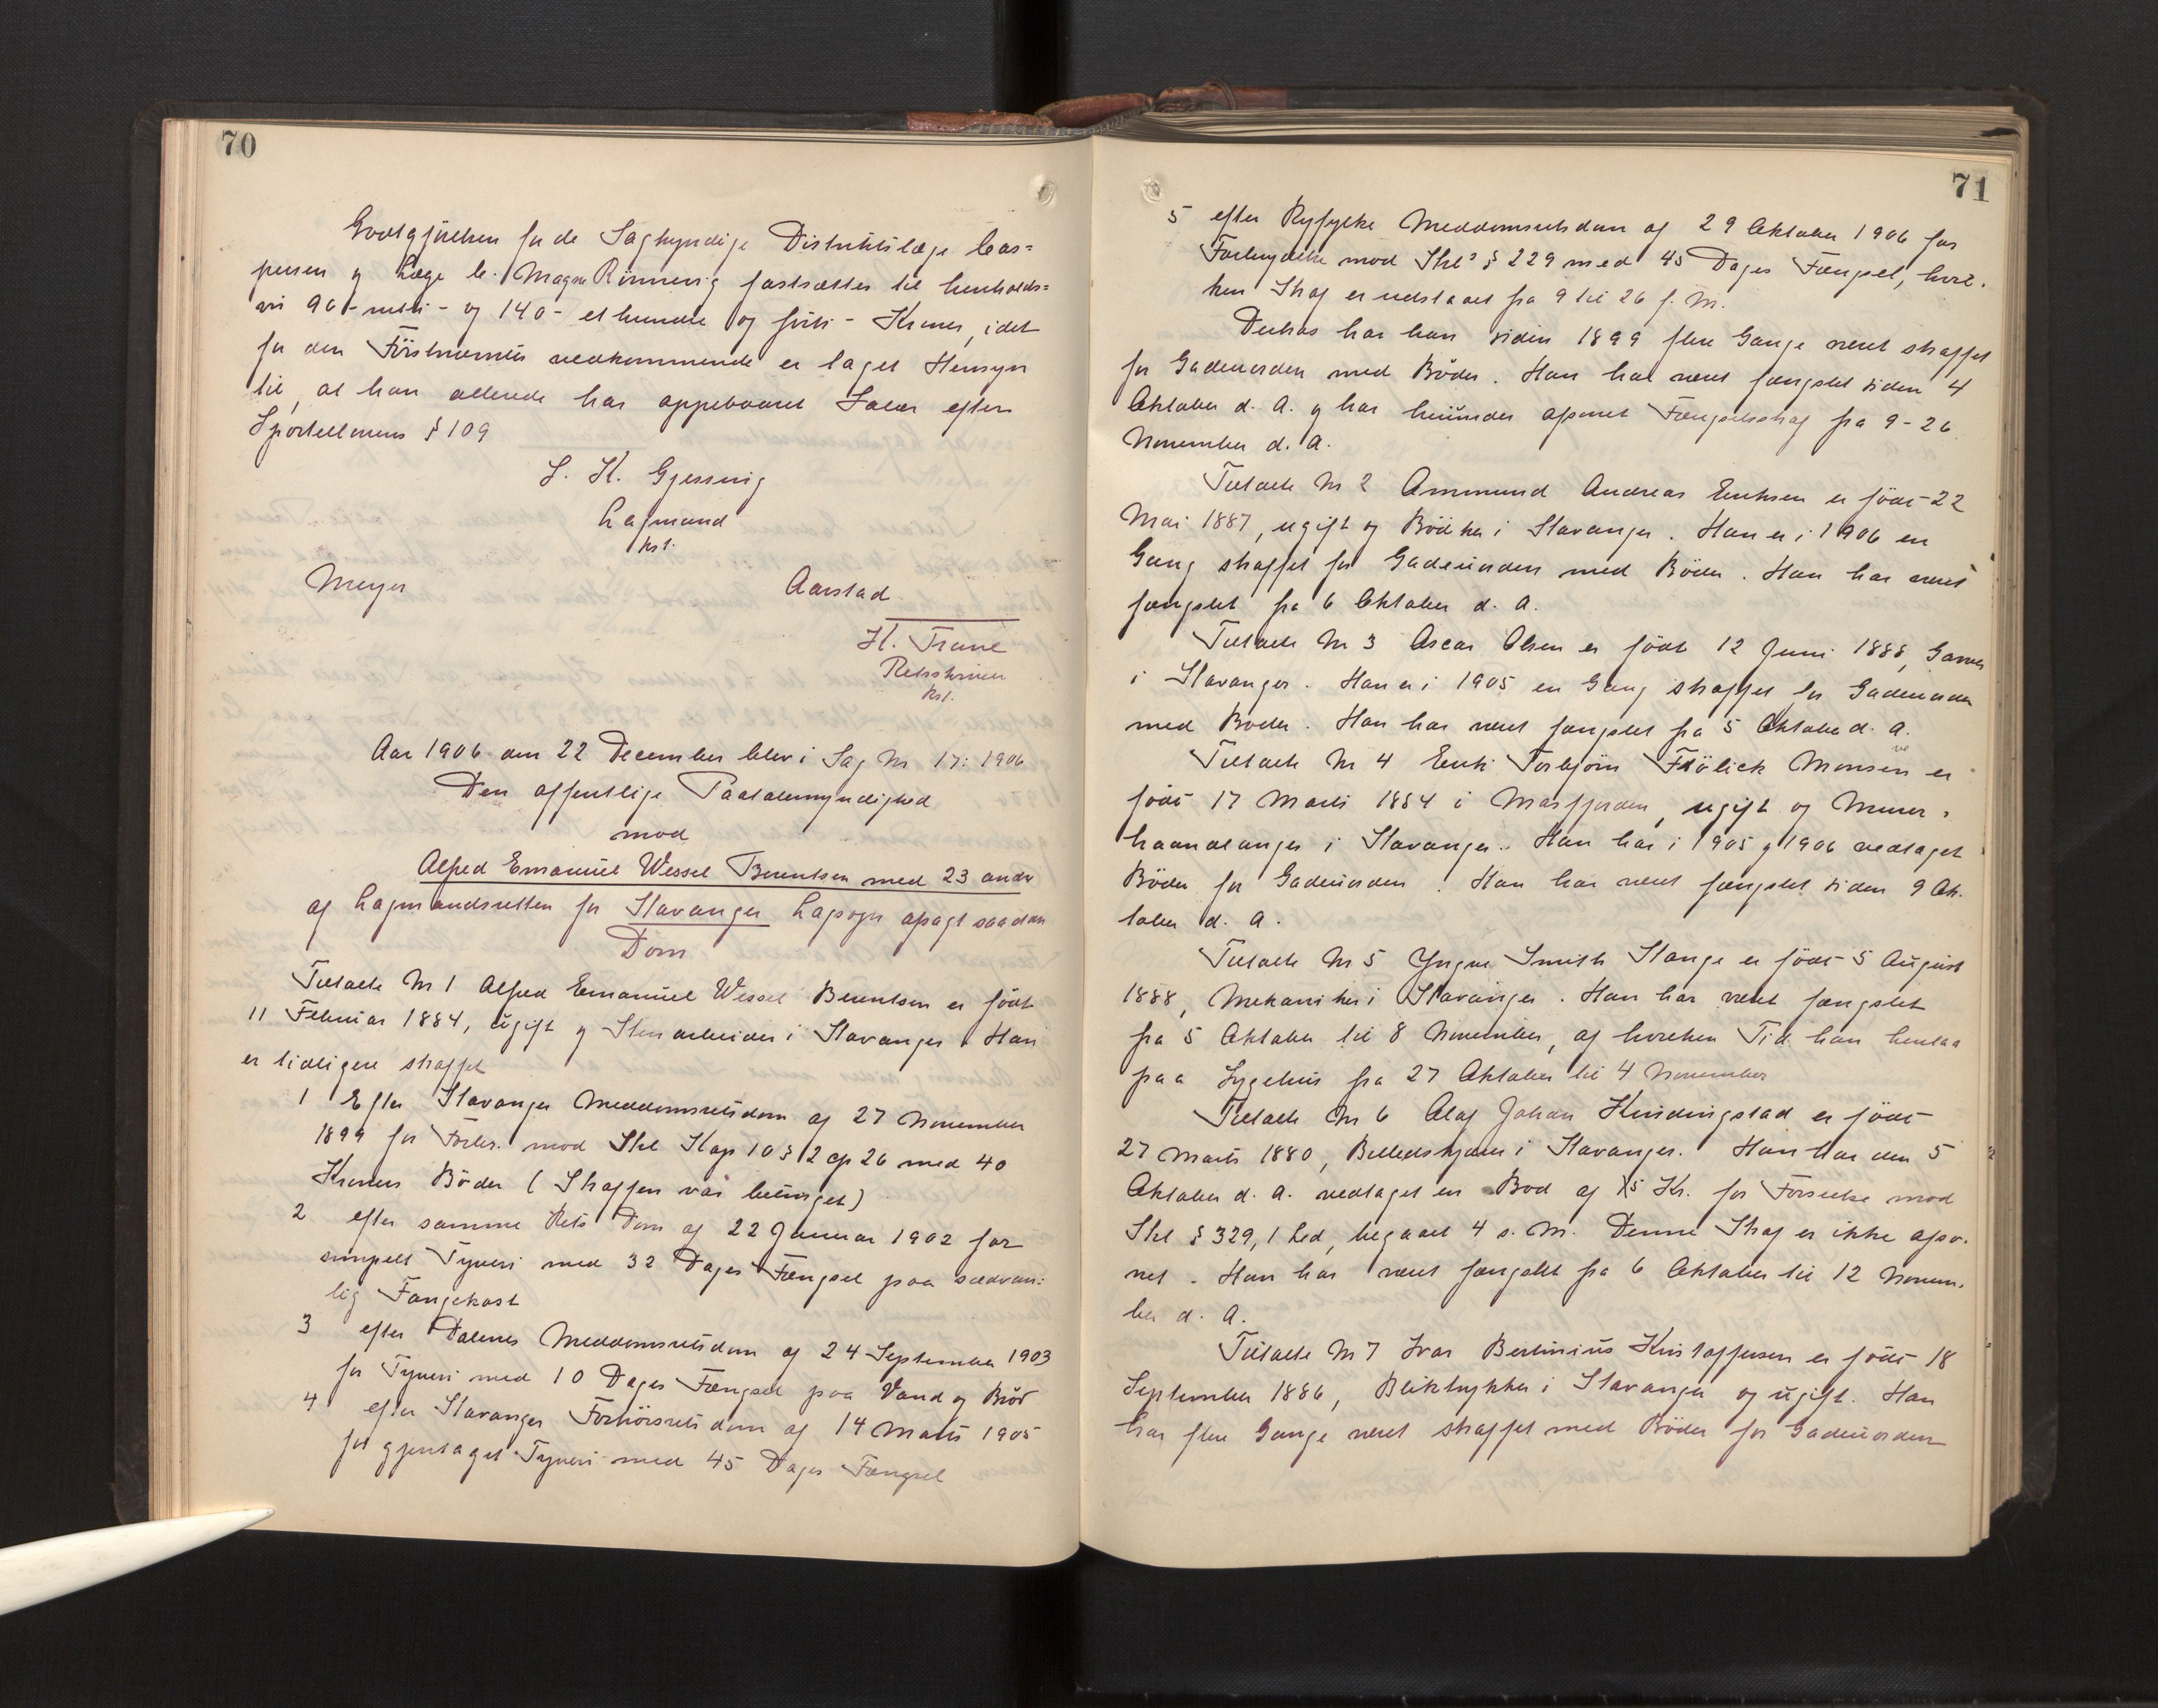 70
Godtgjørelsen for de Sagkyndige Distriktslæge Cas=
persen og Læge C. Magnus Rønnevig fastsættes til henholds=
vis 90 - nitti - og 140 - et hundre og førti - Kroner, idet
for den Förstnævntes vedkommende er taget Hensyn
til, at han allerede har oppebaaret Salær efter
Sportellovens § 109
S. K. Gjessing
Lagmand
kst.
Meyer Aarstad
H. Trane
Retsskriver
kst.
Aar 1906 den 22 December blev i Sag No 17: 1906
Den offentlige Paatalemyndighed
mod
Alfred Emanuel Wessel Berentsen med 23 andre
af Lagmandsretten for Stavanger Lagsogn afsagt saadan
Dom
Tiltalte No 1 Alfred Emanuel Wessel Berentsen er födt
11 Februar 1884, ugift og Stenarbeider i Stavanger. Han
er tidligere straffet
1 Efter Stavanger Meddomsretsdom af 27 November
1899 for Forbr. mod Strl Kap 10 § 12 cp 26 med 40
Kroners Böder (Straffen var betinget)
2 efter samme Rets Dom af 22 Januar 1902 for
simpelt Tyveri med 32 Dages Fængsel paa sædvan=
lig Fangekost
3 efter Dalenes Meddomsretsdom af 24 September 1903
for Tyveri med 10 Dages Fængsel paa Vand og Bröd
4 efter Stavanger Forhörsretsdom af 14 Marts 1905
for gjentaget Tyveri med 45 Dages Fængsel
71
5 efter Ryfylke Meddomsretsdom af 29 Oktober 1906 for
Forbrydelse mod Strls § 229 med 45 Dages Fængsel, hvil-
ken Straf er udstaaet fra 9 til 26 f. M.
Desuden har han siden 1899 flere Gange været straffet
for Gadeuorden med Böder. Han har været fængslet siden 4
Oktober d. A. og har herunder afsonet Fængselsstraf fra 9-26
November d. A.
Tiltalte No 2 Ommund Andreas Eriksen er födt 22
Mai 1887, ugift og Bödker i Stavanger. Han er i 1906 en
Gang straffet for Gadeuorden med Böder. Han har været
fængslet fra 6 Oktober d. A.
Tiltalte No 3 Oscar Olsen er födt 12 Juni 1888, Garver
i Stavanger. Han er i 1905 en Gang straffet for Gadeuorden
med Böder. Han har været fængslet fra 5 Oktober d. A.
Tiltalte No 4 Erik Torbjörn Frölick Monsen er
födt 17 Marts 1884 i Masfjorden, ugift og Murer-
haandlanger i Stavanger. Han har i 1905 og 1906 vedtaget
Böder for Gadeuorden. Han har været fængslet siden 9 Ok-
tober d. A.
Tiltalte No 5 Yngve Smith Stange er födt 5 August
1888, Mekaniker i Stavanger. Han har været fængslet
fra 5 Oktober til 8 November, af hvilken Tid han henlaa
paa Sygehus fra 27 Oktober til 4 November
Tiltalte No 6 Olaf Johan Kindingstad er födt
27 Marts 1880, Billedskjærer i Stavanger. Han har den 5
Oktober d. A. vedtaget en Bod af 15 Kr. for Forseelse mod
Strl § 329, 1 Led, begaaet 4 s. M. Denne Straf er ikke afso-
net. Han har været fængslet fra 6 Oktober til 12 Novem-
ber d. A.
Tiltalte No 7 Ivar Bertinius Kristoffersen er födt 18
September 1886, Bliktrykker i Stavanger og ugift. Han
har flere Gange været straffet med Böder for Gadeuorden